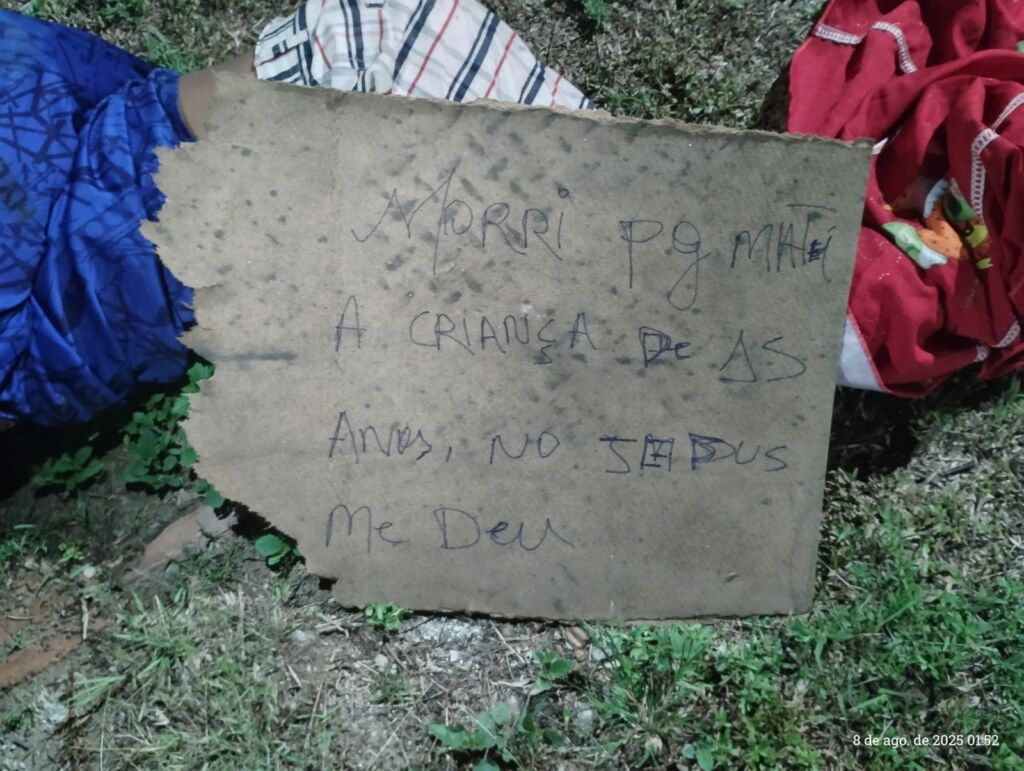 MORRI pq MATEi
A CRiANÇA De 15
ANOS, NO
Me Deu
8 de ago. de 2025 01:52